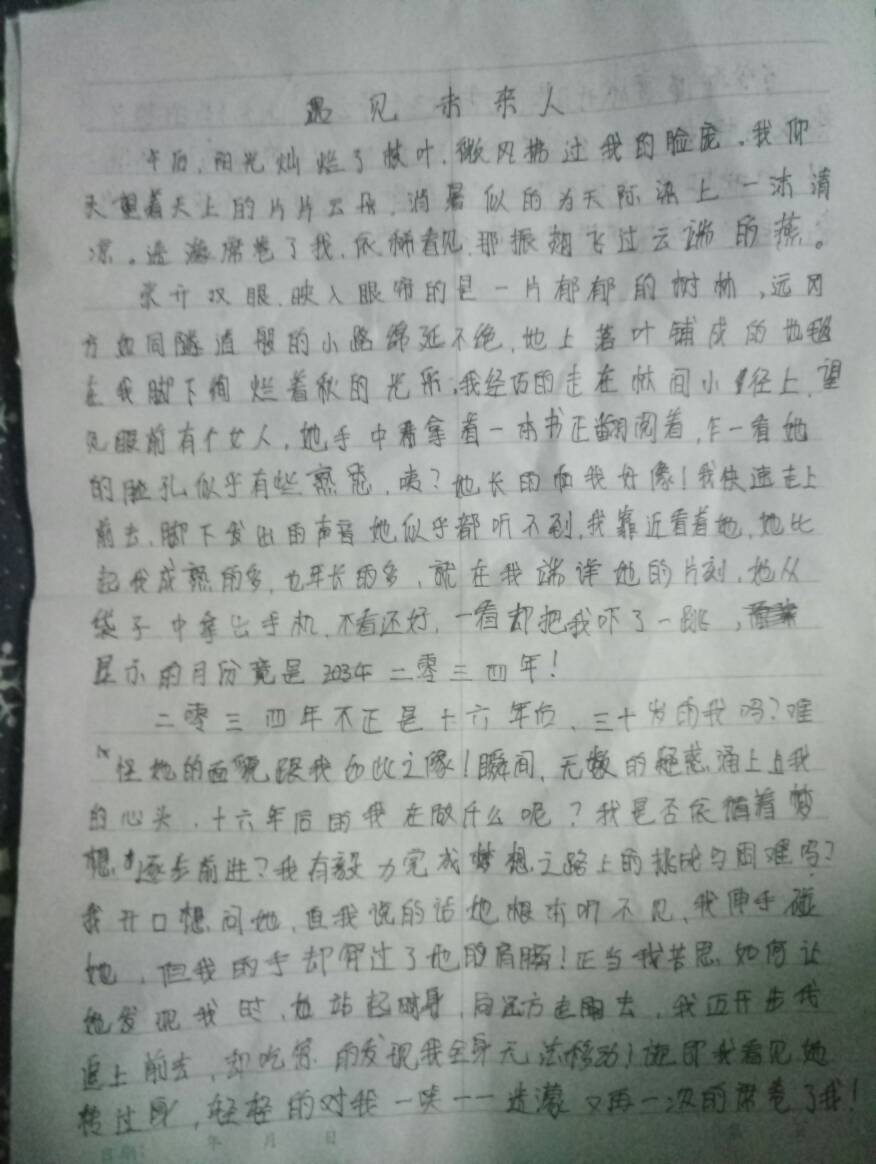 遇见未来人
午后,阳光灿烂了枝叶,微风拂过我的脸庞。我仰
天望着天上的片片云朵,消暑似的为天际染上一沫清
凉。迷濛席卷了我,依稀看见那振翅飞过云端的燕。
张开双眼,映入眼帘的是一片郁郁的树林,远
方如同隧道般的小路绵延不绝,地上落叶铺成的地毯
在我脚下绚烂着秋的光彩,我轻巧的走在林间小径上,望
见眼前有个女人,她手中拿着一本书正翻阅着,乍一看她
的脸孔似乎有些熟悉,咦?她长的和我好像!我快速走上
前去,脚下发出的声音她似乎都听不到,我靠近看着她,她比
起我成熟的多,也年长的多,就在我端详她的片刻,她从
袋子中拿出手机,不看还好,一看却把我吓了一跳,
显示的月份竟是2034年二零三四年!
二零三四年不正是十六年后、三十岁的我吗?难
怪她的面貌跟我如此之像!瞬间,无数的疑惑涌上上我
的心头,十六年后的我在做什么呢?我是否依循着梦
想逐步前进?我有毅力完成梦想之路上的挑战与困难吗?
我开口想问她,但我说的话她根本听不见,我伸手碰
她,但我的手却穿过了她的肩膀!正当我苦思如何让
她发现我时,她站起身,向远方走去,我迈开步伐
追上前去,却吃惊的发现我全身无法移动!随即我看见她
转过身,轻轻的对我一笑——迷濛又再一次的席卷了我!
日期: 年 月 日